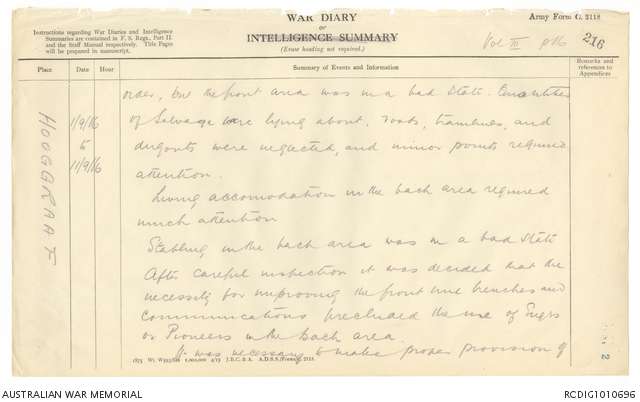 WAR DIARY
or
INTELLIGENCE SUMMARY
(Erase heading not required.)
Army Form C. 2118
Instructions regarding War Diaries and Intelligence
Summaries are contained in F. S. Regs., Part II.
and the Staff Manual respectively. Title Pages
will be prepared in manuscript.
Vol III p16
216
Place
Date
Hour
Summary of Events and Information
Remarks and
references to
Appendices
HOOGGRAAF
1/9/16
to
11/9/16
order, but the front area was in a bad state. Quantities
of Salvage were lying about, roads, tramlines, and
dugouts were neglected, and minor points required
attention.
Living accomodation in the back area required
much attention
Stabling in the back area was in a bad state
After careful inspection it was decided that the
necessity for improving the front line trenches and
communications precluded the use of Engrs
or Pioneers in the back area.
It was necessary to make proper provision of
J.B.C. & A. A.D.S.S./Forms/C. 2118.
AUSTRALIAN WAR MEMORIAL
RCDIG1010696